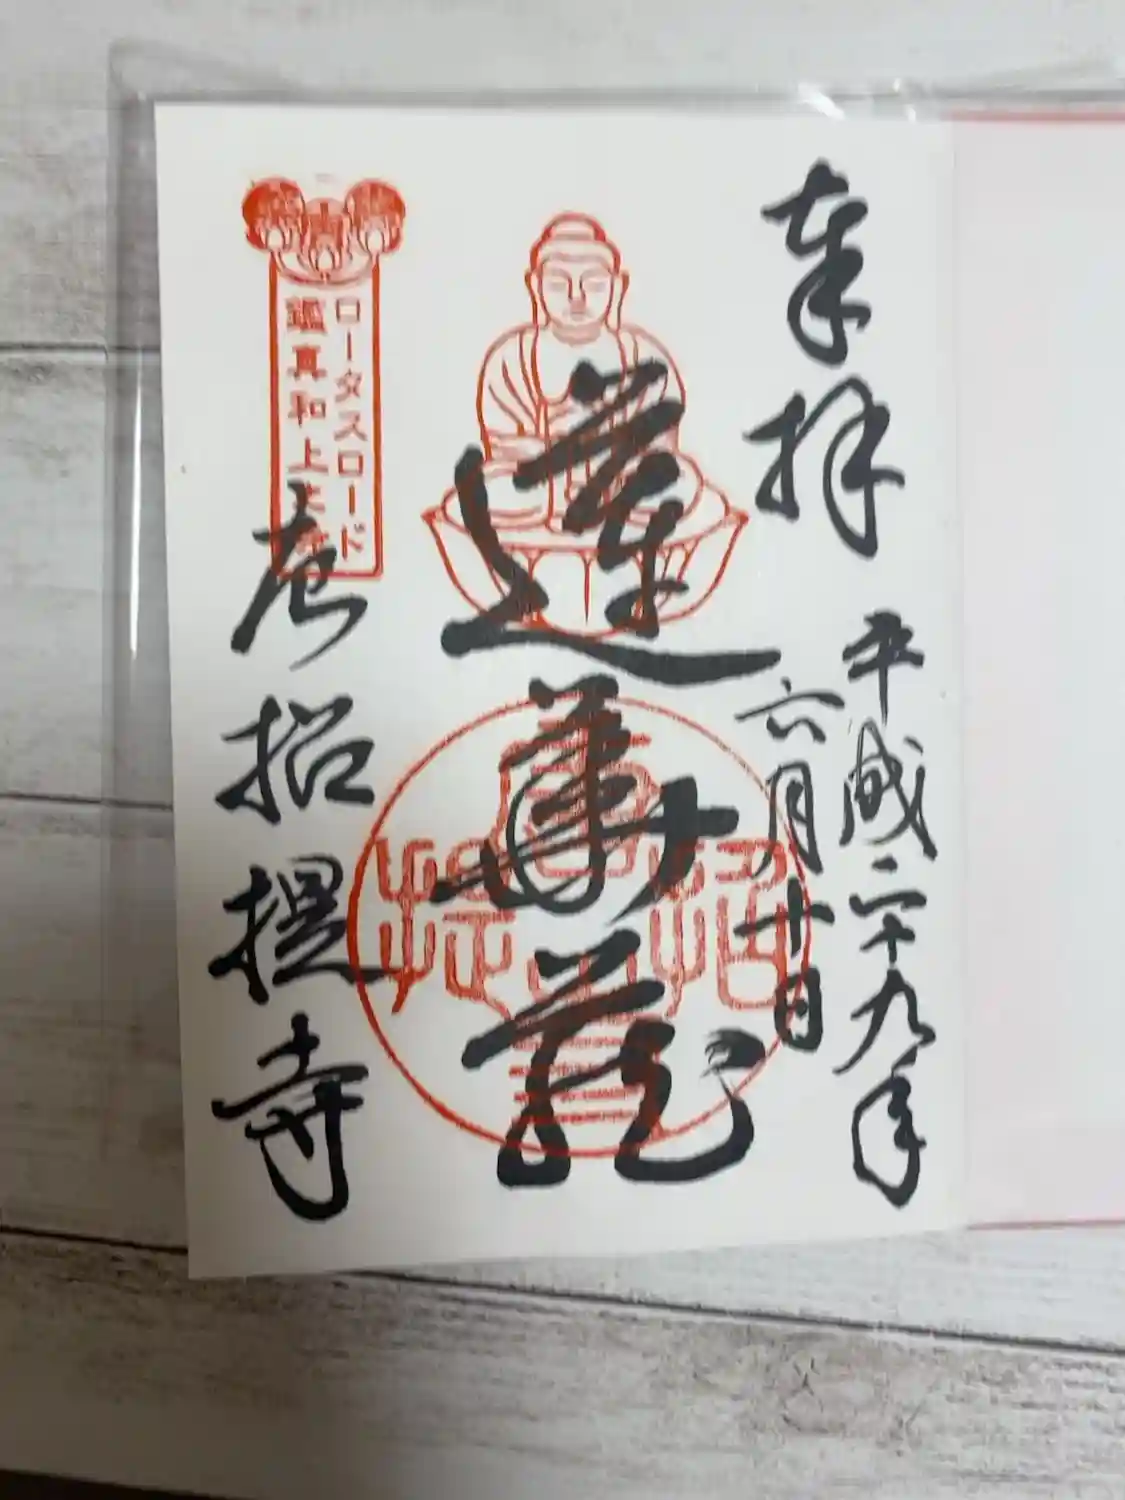 奉拝
平成二十九年
六月十日
蓮華蔵
ロータスロード
鑑真和上
唐招提寺